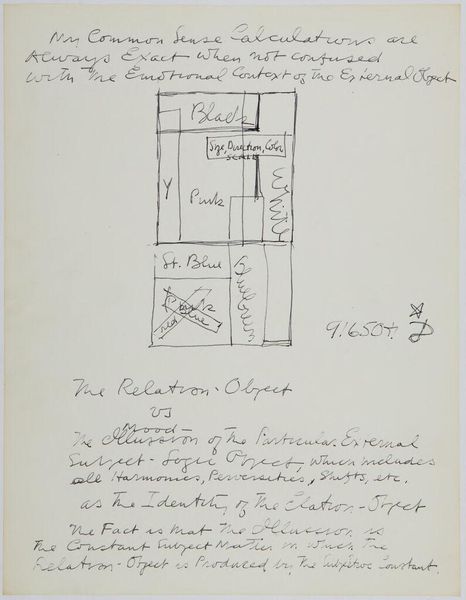 My Common Sense Calculations are
Always Exact when not confused
with the Emotional Context of the External Object
Black
Size, Direction, Color
Scale
Y
Pink
White
St. Blue
Blue Green
Blue
red
9/650+
D
The Relation-Object
vs
Mood-
The Illussion of the Particular External
Subject-Logic Object, which includes
all Harmonies, Perversities, Shifts, etc.
as the Identity of the Elation-Object
The Fact is that the Illussion is
the Constant Subject Matter in which the
Relation-Object is Produced by the Constant.